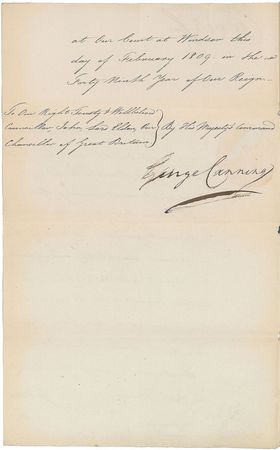 at Our Court at Windsor this
day of February 1809 in the
Forty Ninth Year of Our Reign
To Our Right Trusty & Wellbeloved
Councillor John, Lord Eldon Our
Chancellor of Great Britain
By His Majesty's Command
George Canning